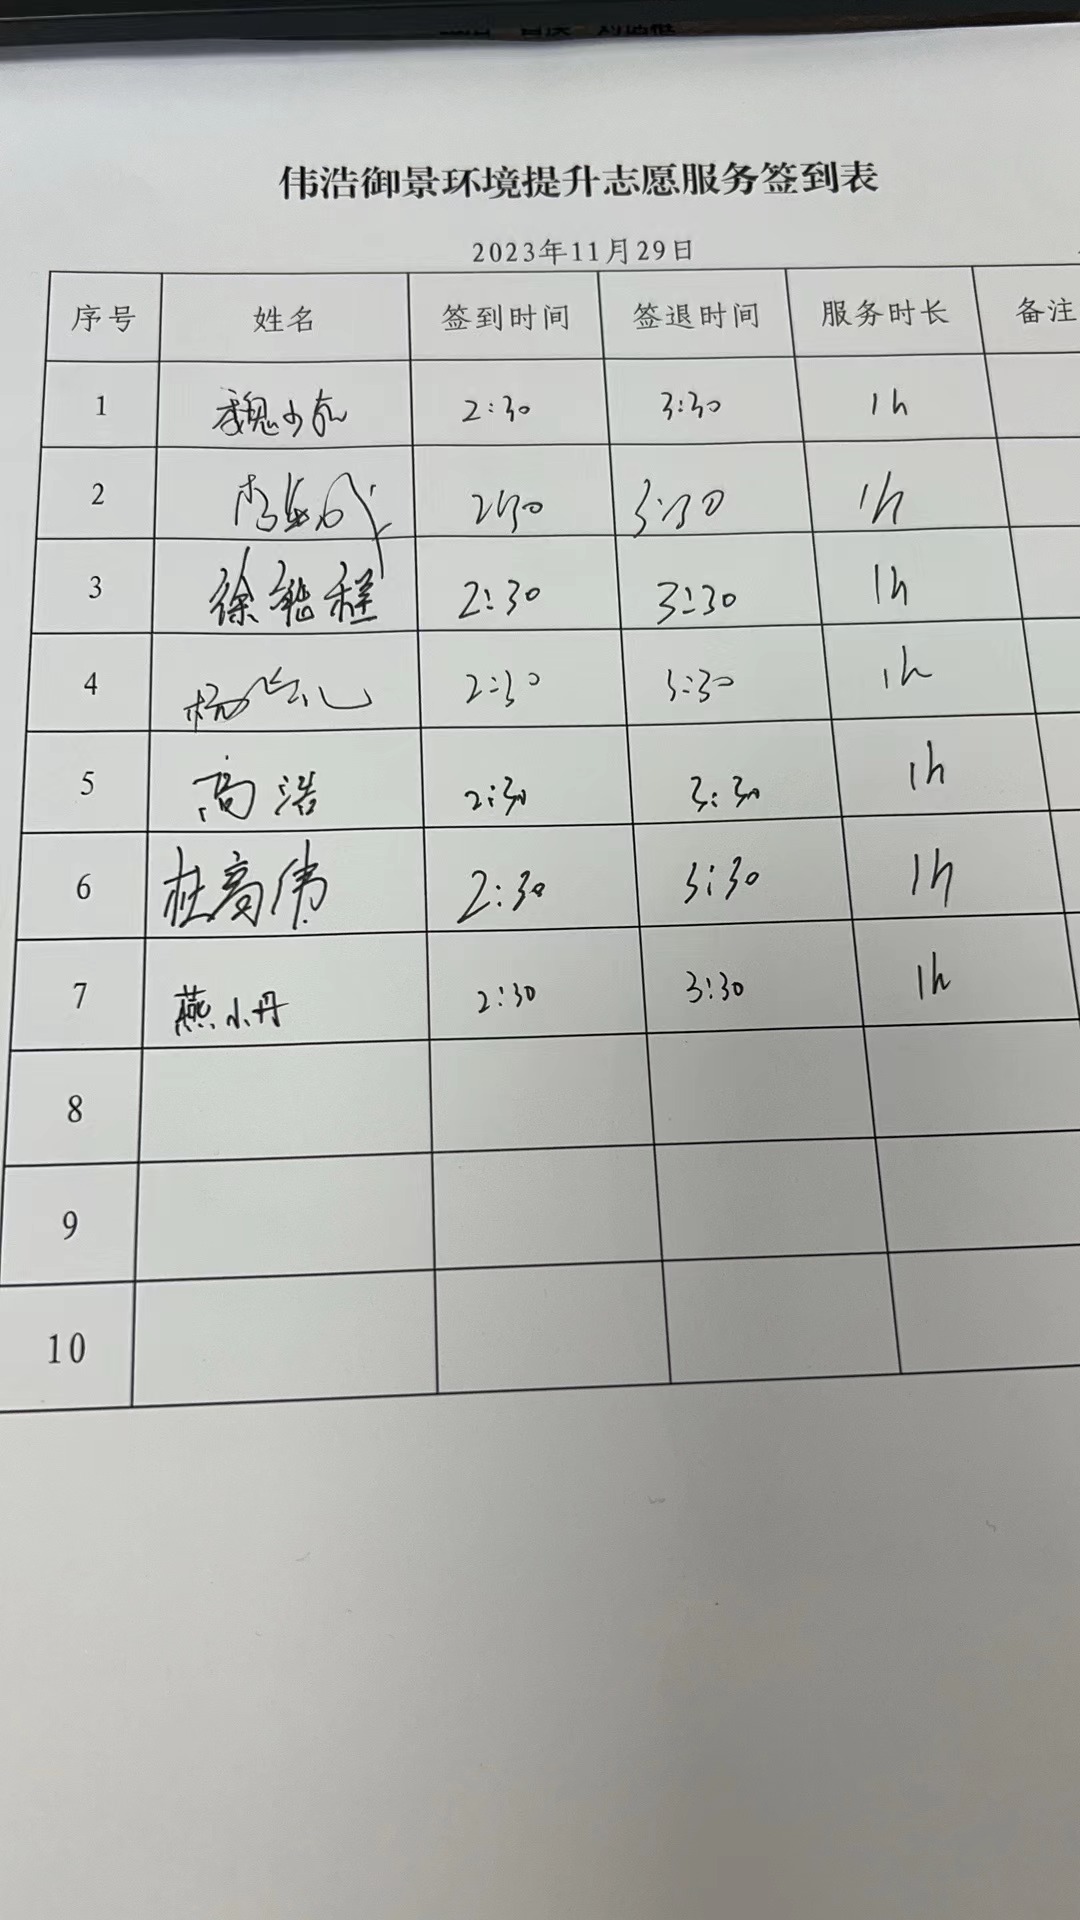 伟浩御景环境提升志愿服务签到表
2023年11月29日
序号 姓名 签到时间 签退时间 服务时长 备注
1 魏少 2:30 3:30 1h
2 李 2:30 3:30 1h
3 徐程 2:30 3:30 1h
4 杨 2:30 3:30 1h
5 高浩 2:30 3:30 1h
6 杜高伟 2:30 3:30 1h
7 燕小丹 2:30 3:30 1h
8
9
10